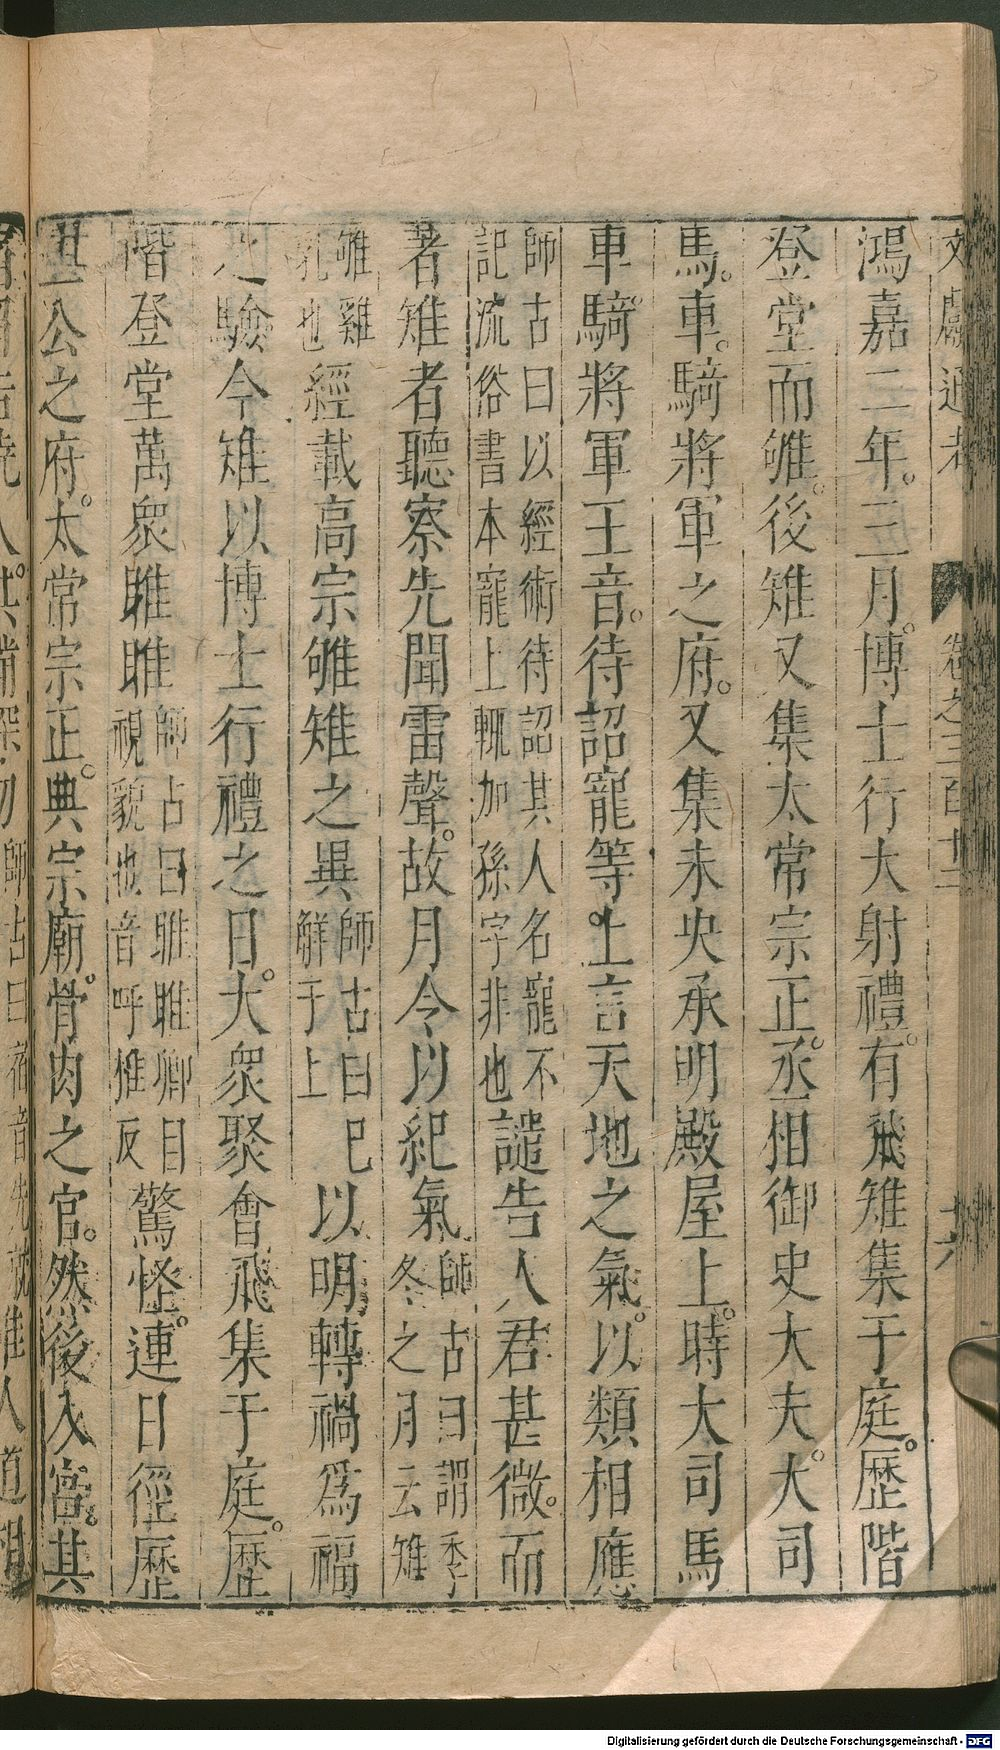 文獻通考 卷之三百十二 六
鴻嘉二年。三月。博士行大射禮。有飛雉集于庭。歴階
登堂而雊。後雉又集太常宗正。丞相御史大夫。大司
馬。車。騎將軍之府。又集未央承明殿屋上。時大司馬
車騎將軍王音。待詔寵等。上言天地之氣。以類相應
師古曰以經術待詔其人名寵不
記流俗書本寵上輒加孫字非也
譴告人君甚微。而
著雉者聽察先聞雷聲。故月令以紀氣
師古曰謂季
冬之月云雉
雊雞
乳也
經載高宗雊雉之異
師古曰已
觧于上
以明轉禍爲福
之驗今雉以博士行禮之日。大衆聚會飛集于庭。歴
階登堂萬衆睢睢
師古曰睢睢仰目
視貌也音呼推反
驚怪。連日徑歴
三公之府。太常宗正。典宗廟。骨肉之官。然後入宮。其
師古曰宿音先
人道相
Digitalisierung gefördert durch die Deutsche Forschungsgemeinschaft - DFG